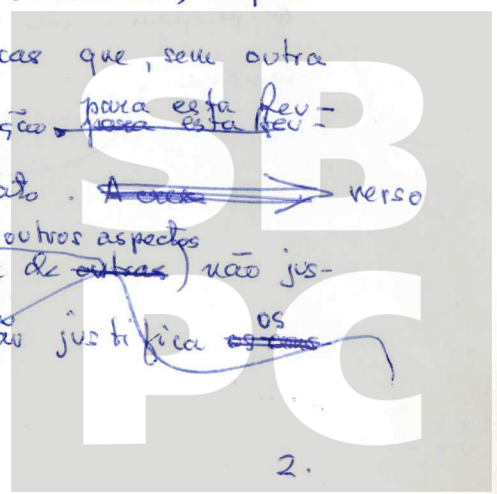 cas que, sem outra
para esta Reu-
ção para esta Reu-
ato. A verso
outros aspectos
de outras) não jus-
os
ão justifica
2.
SB
PC